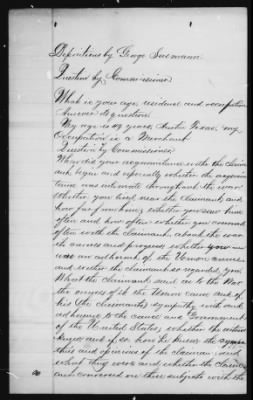 Depositions by George Sarmann
Question by Commissioner
What is your age, residence and occupation
Answer to question
My age is 47 years, Austin Texas, my
Occupation is a Merchant
Question by Commissioner
When did your acquaintance with the claim
ant begin and especially whether the acquain
tance was intimate throughout the war
Whether you lived near the claimant, and
how far from him, whether you saw him
often and how often, whether you conversed
often with the claimant, about the war
its causes and progress, whether you
was an adherent of the Union cause
and whether the claimant so regarded you,
What the claimant said as to the War
the success of the Union cause and of
his (the claimants) sympathy with and
adherence to the cause and Government
of the United States, whether the witness
knows and if so how he knew the sympa
thies and opinions of the claimant, and
what they were, and whether the claim
ant conversed on these subjects with the